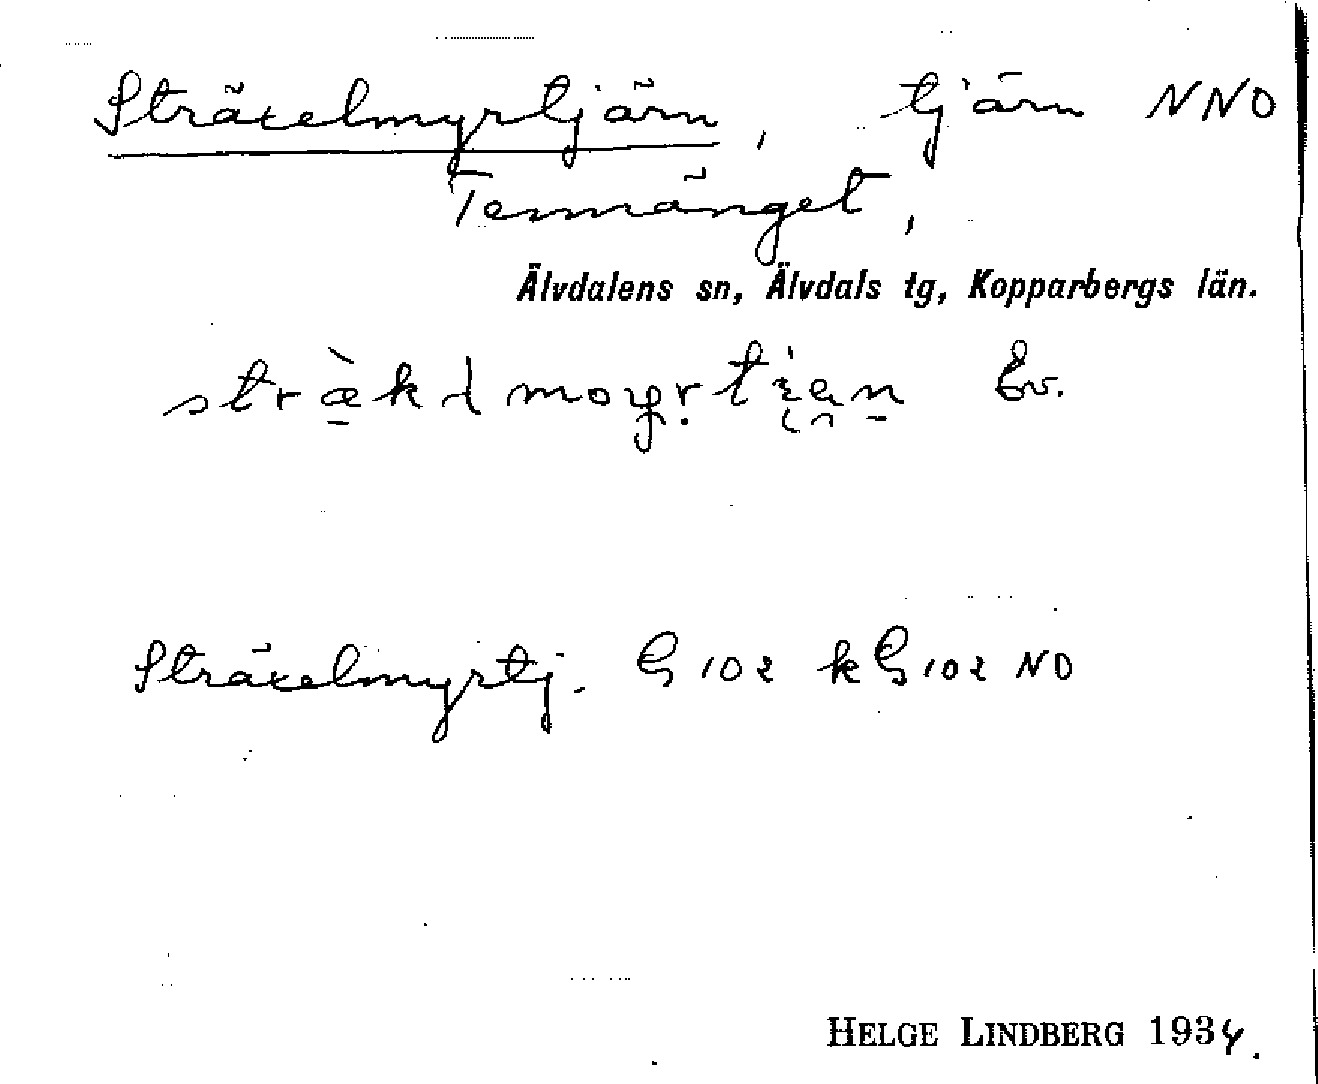 Sträkelmyrtjärn, tjärn NNO
Tennänget,
Älvdalens sn, Älvdals tg, Kopparbergs län.
Ev.
Sträkelmyrtj. G 102 k G 102 NO
HELGE LINDBERG 1934.